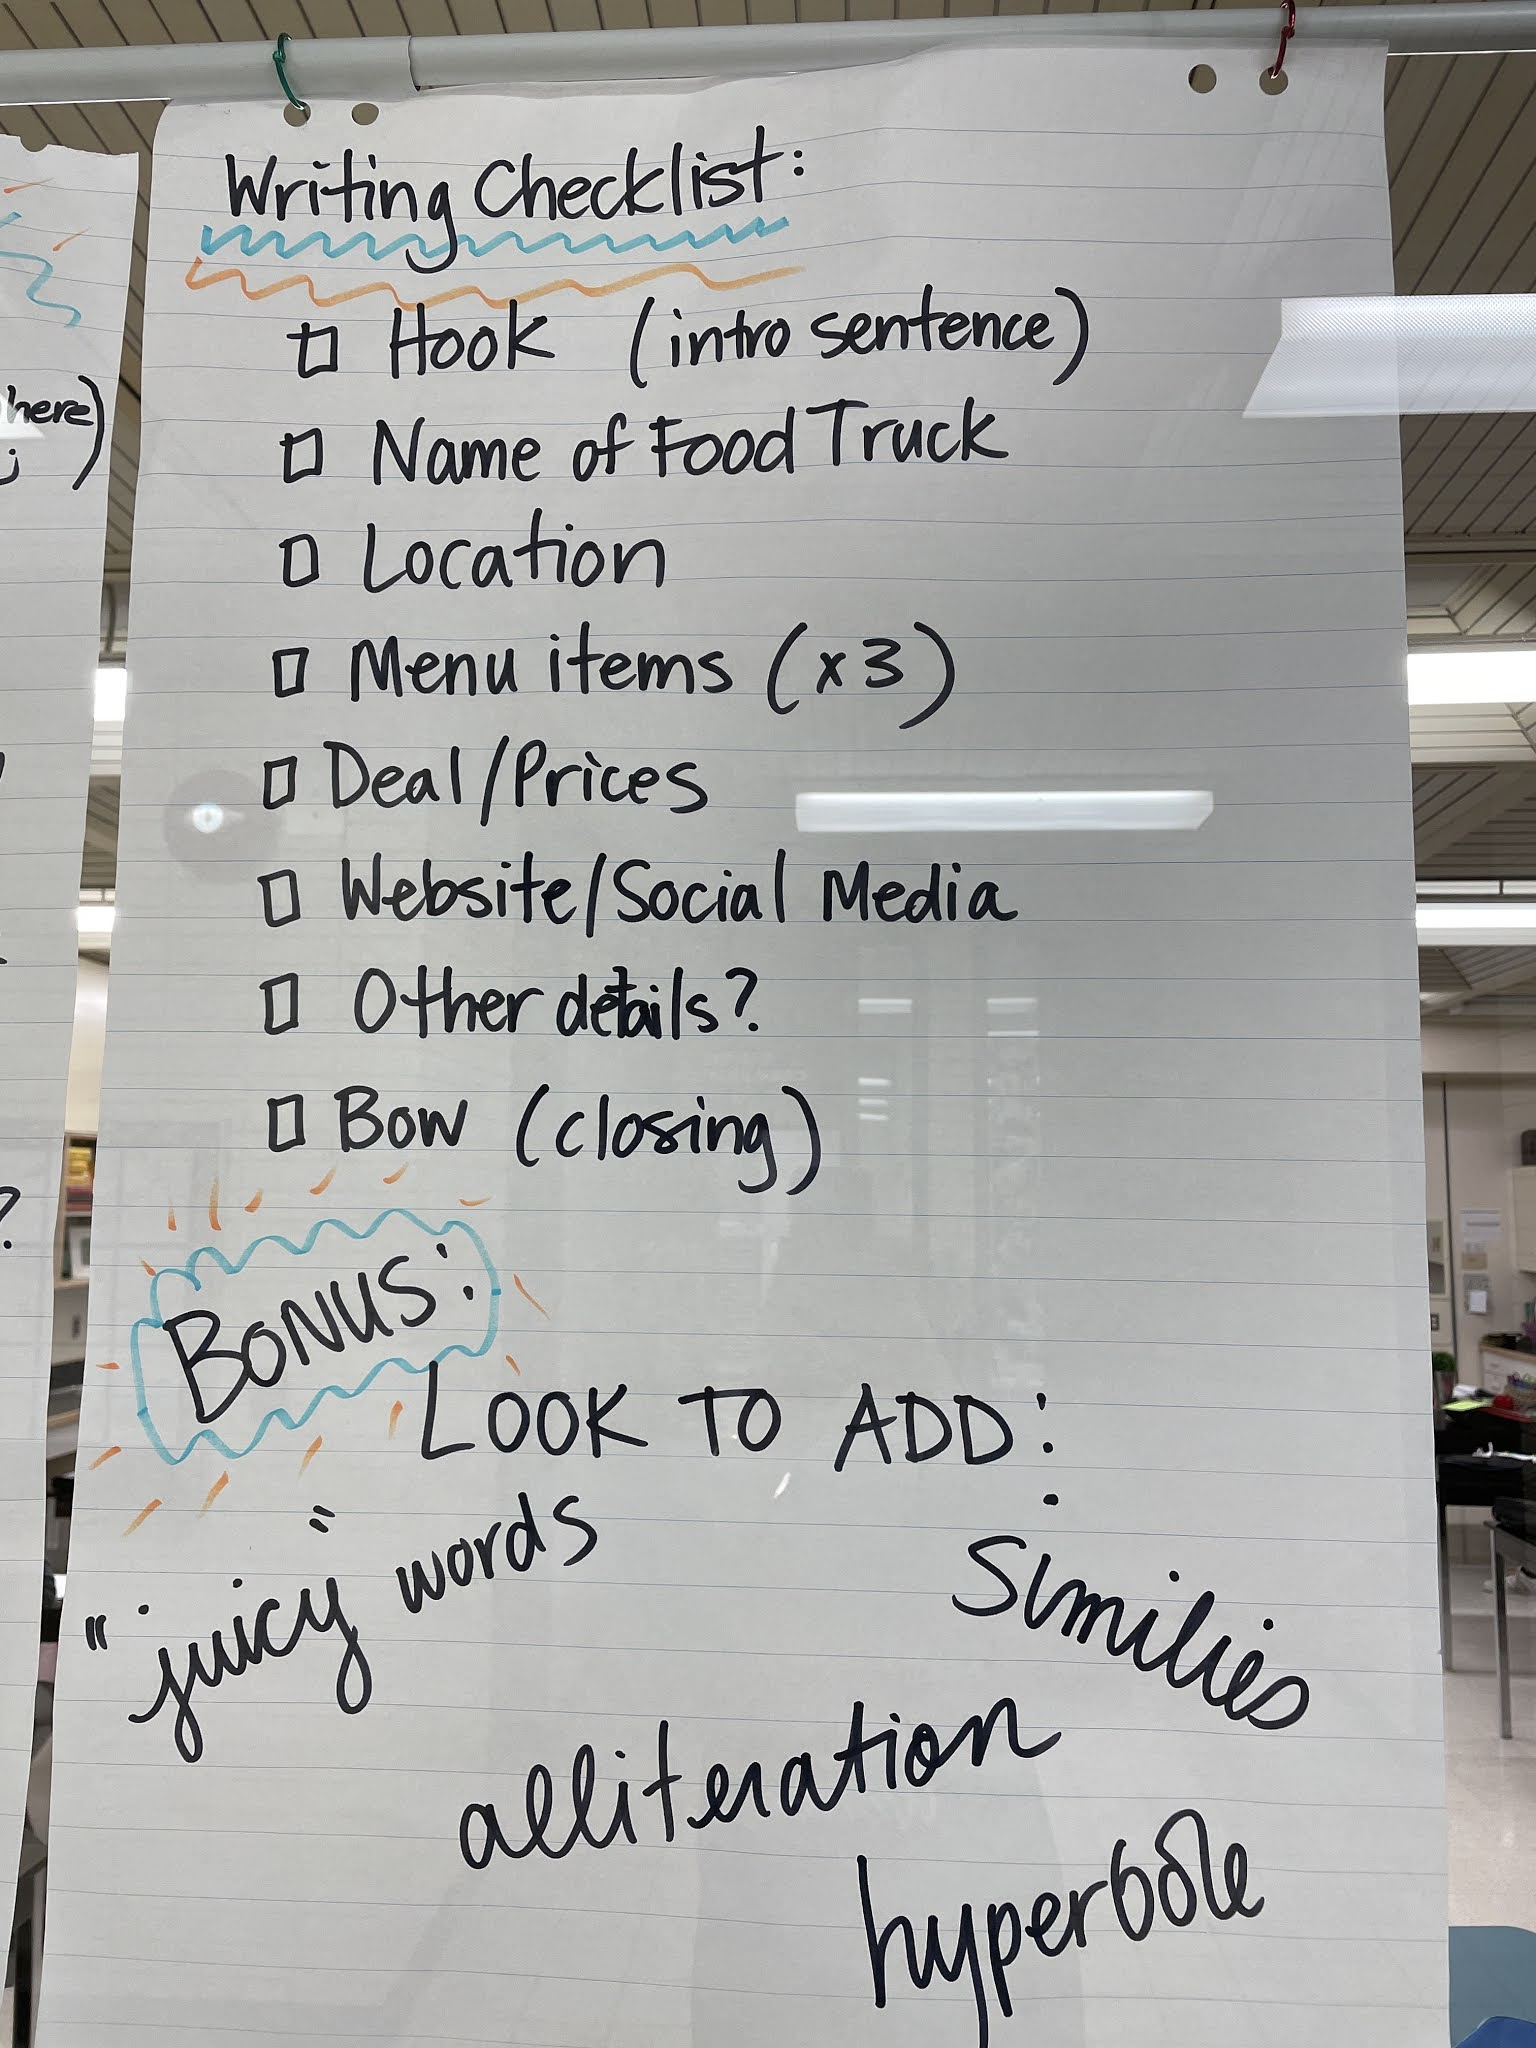 Writing Checklist:
Hook (intro sentence)
Name of Food Truck
Location
Menu items (x3)
Deal/Prices
Website/Social Media
Other details?
Bow (closing)
BONUS:
LOOK TO ADD:
"juicy" words
similies
alliteration
hyperbole
here)
?